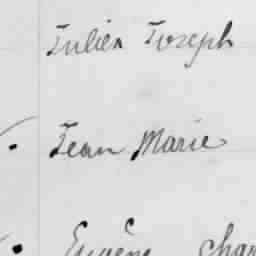 Julien Joseph
Jean Marie
Eugène